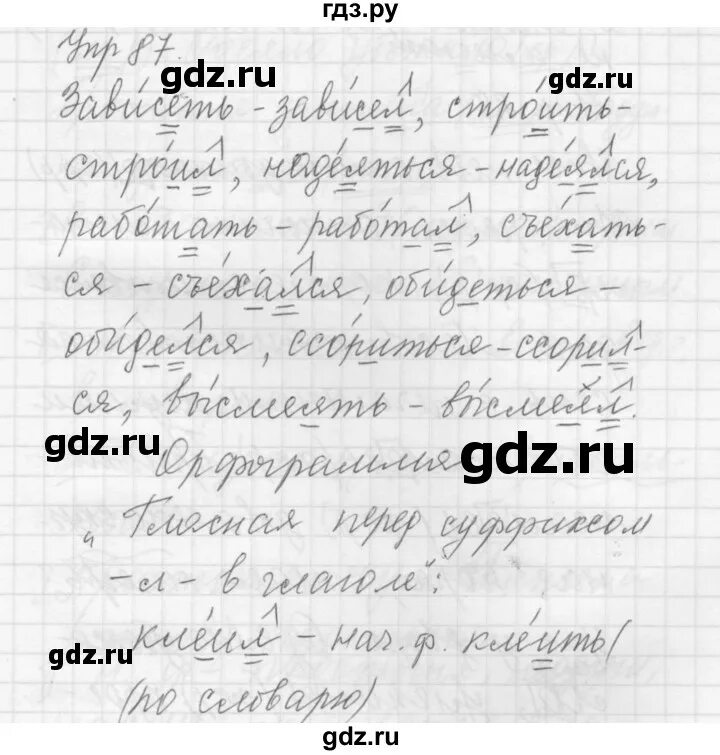 гдз.ру
Упр 87.
gdz.ru
Зави́сеть - зави́сел, стро́ить-
стро́ил, наде́яться - наде́ялся,
рабо́тать - рабо́тал, съе́хать-
ся - съе́хался, оби́деться -
gdz.ru
оби́делся, ссо́риться - ссорил-
ся, вы́смеять - вы́смеял.
gdz.ru
gdz.ru
Орфограммия
„Гласная перед суффиксом
-л- в глаголе":
кле́ил - нач. ф. кле́ить (
gdz.ru
(по словарю)
gdz.ru
gdz.ru